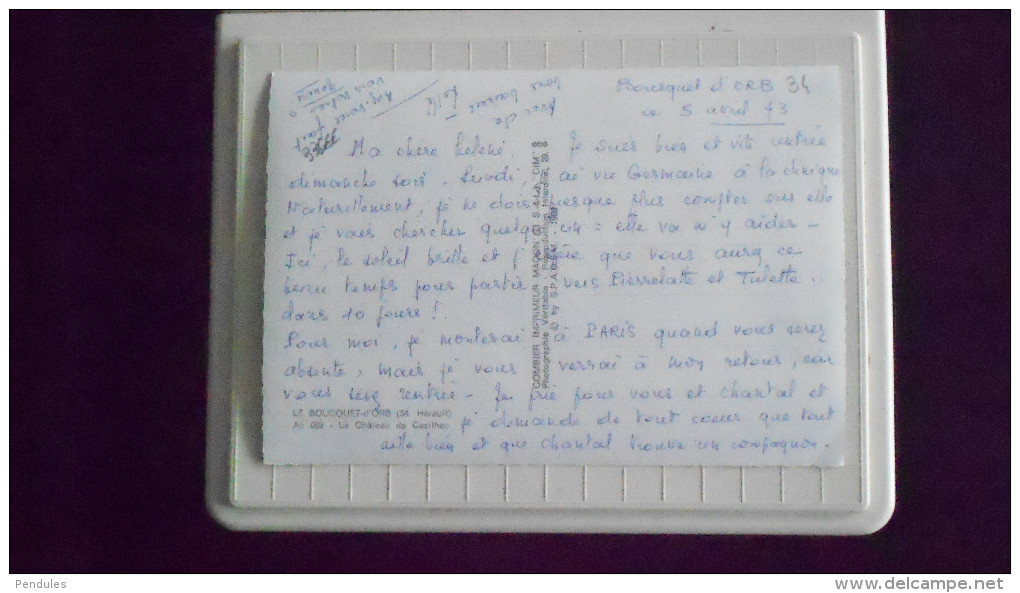 Bousquet d'ORB 34
ce 5 avril 73
Ma chère Je suis bien et vite rentrée
dimanche soir - Lundi, ai vu Germaine à la clinique
Naturellement, je ne dois presque plus compter sur elle
et je vais chercher quelqu'un = elle va m'y aider -
Ici, le soleil brille et j' que vous aurez ce
beau temps pour partir vers Pierrelatte et Tulette ..
dans 10 jours !.
Pour moi, je monterai à PARIS quand vous serez
absente, mais je vous verrai à mon retour, car
vous serez rentrée - Je prie pour vous et Chantal et
je demande de tout coeur que tout
aille bien et que Chantal trouve un compagnon -
LE BOUSQUET-d'ORB (34. Hérault)
Au - Le Château de Cazilhac
COMBIER IMPRIMEUR MACON (S.-&-L.) "CIM"
Photographie Véritable - Reproduction Interdite
© by S.P.A.D.E.M.
Pendules
www.delcampe.net